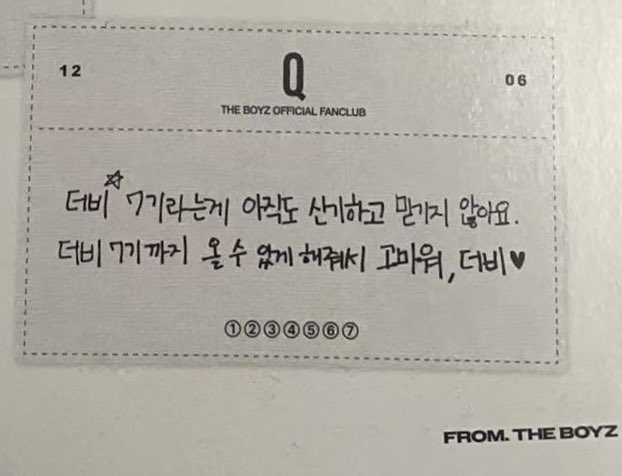 12 Q 06
THE BOYZ OFFICIAL FANCLUB
더비☆ 7기라는게 아직도 신기하고 믿기지 않아요.
더비 7기까지 올 수 있게 해줘서 고마워, 더비♥
①②③④⑤⑥⑦
FROM. THE BOYZ